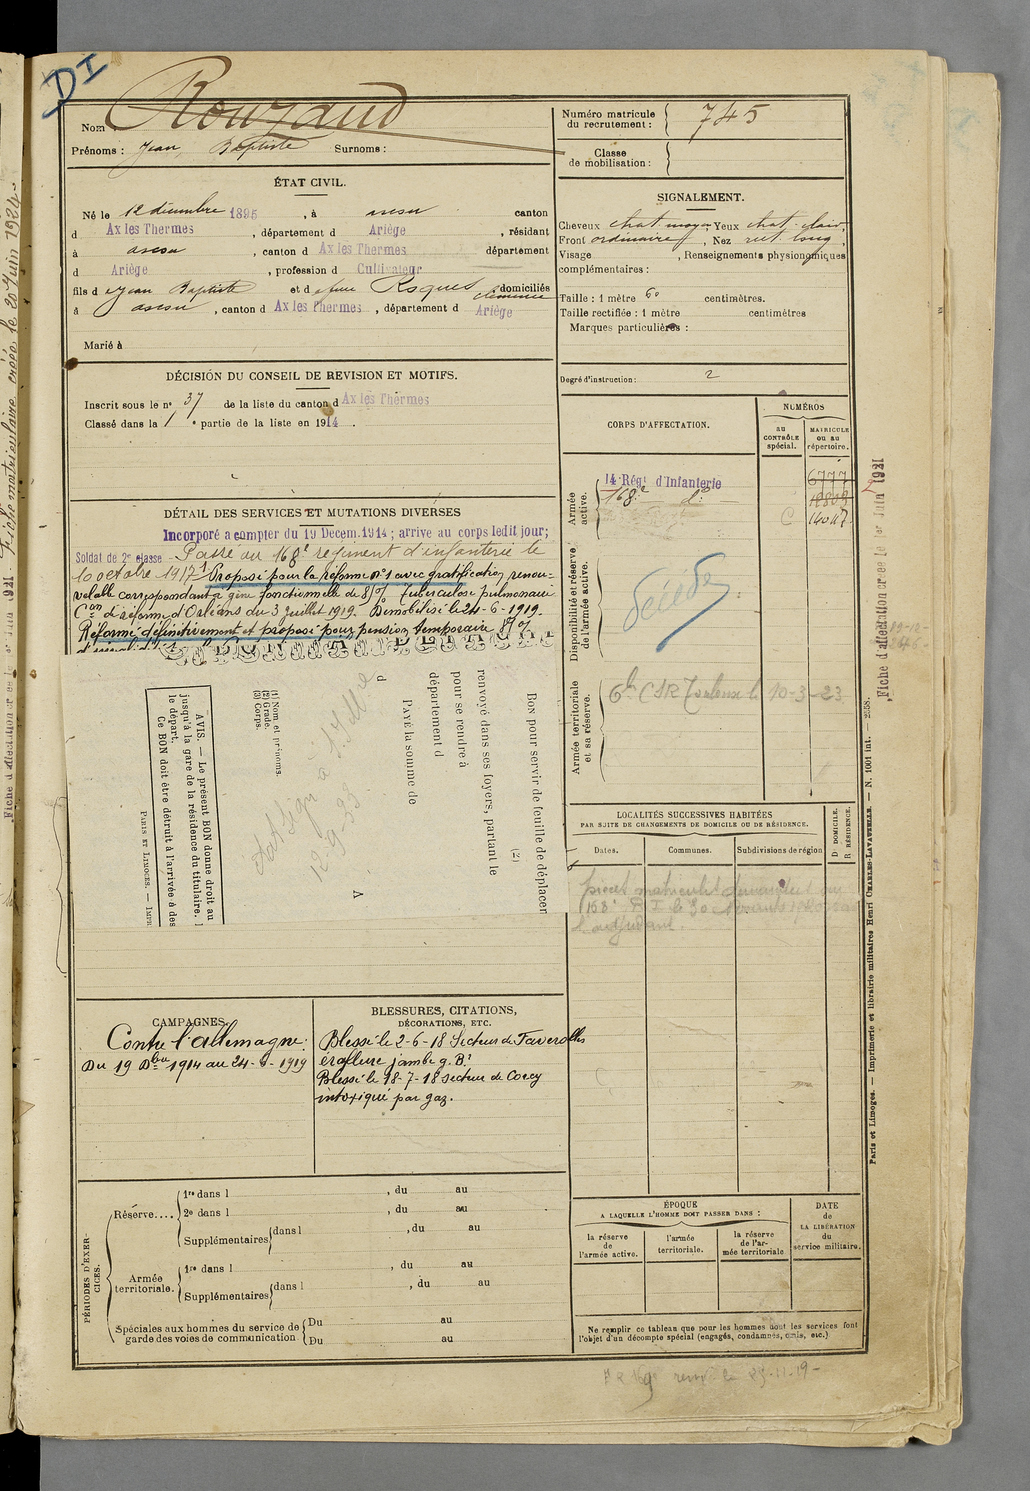 DI
Nom Rouzaud
Prénoms : Jean Baptiste Surnoms :
ÉTAT CIVIL.
Né le 12 décembre 1895, à ascou canton
d Ax les Thermes, département d Ariège, résidant
à ascou, canton d Ax les Thermes département
d Ariège, profession d Cultivateur
fils d Jean Baptiste et d domiciliés
à ascou, canton d Ax les Thermes, département d Ariège
Marié à
DÉCISION DU CONSEIL DE REVISION ET MOTIFS.
Inscrit sous le n° 37 de la liste du canton d Ax les Thermes
Classé dans la 1e partie de la liste en 1914.
DÉTAIL DES SERVICES ET MUTATIONS DIVERSES
Incorporé a compter du 19 Décem. 1914 ; arrive au corps ledit jour ;
Soldat de 2e classe Passé au 168e régiment d'infanterie le
10 octobre 1917 Proposé pour la réforme n°1 avec gratification renou-
velable correspondant a gêne fonctionnelle de 8% Tuberculose pulmonaire
Con de réforme d'Orléans du 3 Juillet 1919. Démobilisé le 24-6-1919.
Réformé définitivement et proposé pour pension temporaire 8%
BON pour servir de feuille de déplacer
(2)
renvoyé dans ses foyers, partant le
pour se rendre à
département d
PAYÉ la somme de
d
A
12-9-33
(1) Nom et prénoms.
(2) Grade.
(3) Corps.
AVIS. — Le présent BON donne droit au
jusqu'à la gare de la résidence du titulaire.
le départ.
Ce BON doit être détruit à l'arrivée à des
PARIS ET LIMOGES. — IMPR
CAMPAGNES.
Contre l'allemagne.
Du 19 Dbre 1914 au 24-6-1919
BLESSURES, CITATIONS,
DÉCORATIONS, ETC.
Blessé le 2-6-18 Secteur de Faverolles
éraflure jambe g. Bt
Blessé le 18-7-18 secteur de Corcy
intoxiqué par gaz.
PÉRIODES D'EXERCICES.
Réserve....
1re dans l , du au
2e dans l , du au
Supplémentaires dans l , du au
Armée territoriale.
1re dans l , du au
Supplémentaires dans l , du au
Spéciales aux hommes du service de
garde des voies de communication
Du au
Du au
Numéro matricule
du recrutement : 745
Classe
de mobilisation :
SIGNALEMENT.
Cheveux chat. moyen Yeux chat. clair,
Front ordinaire, Nez rect. long,
Visage , Renseignements physionomiques
complémentaires :
Taille : 1 mètre 60 centimètres.
Taille rectifiée : 1 mètre centimètres
Marques particulières :
Degré d'instruction : 2
CORPS D'AFFECTATION.
NUMÉROS
au
CONTRÔLE
spécial.
MATRICULE
ou au
répertoire.
Armée
active.
14 Régt d'Infanterie 6777
168e do
C 14047
Disponibilité et réserve
de l'armée active.
Armée territoriale
et sa réserve.
10-3-23
LOCALITÉS SUCCESSIVES HABITÉES
PAR SUITE DE CHANGEMENTS DE DOMICILE OU DE RÉSIDENCE.
Dates.
Communes.
Subdivisions de région
D. DOMICILE.
R. RÉSIDENCE.
ÉPOQUE
A LAQUELLE L'HOMME DOIT PASSER DANS :
la réserve
de
l'armée active.
l'armée
territoriale.
la réserve
de l'ar-
mée territoriale
DATE
de
LA LIBÉRATION
du
service militaire.
Ne remplir ce tableau que pour les hommes dont les services font
l'objet d'un décompte spécial (engagés, condamnés, omis, etc.)
Paris et Limoges. — Imprimerie et librairie militaires Henri CHARLES-LAVAUZELLE. — N. 1001 int. — 2558.
Fiche d'affectation créée le 1er Juin 1921
Fiche matriculaire créée le 20 Juin 1924